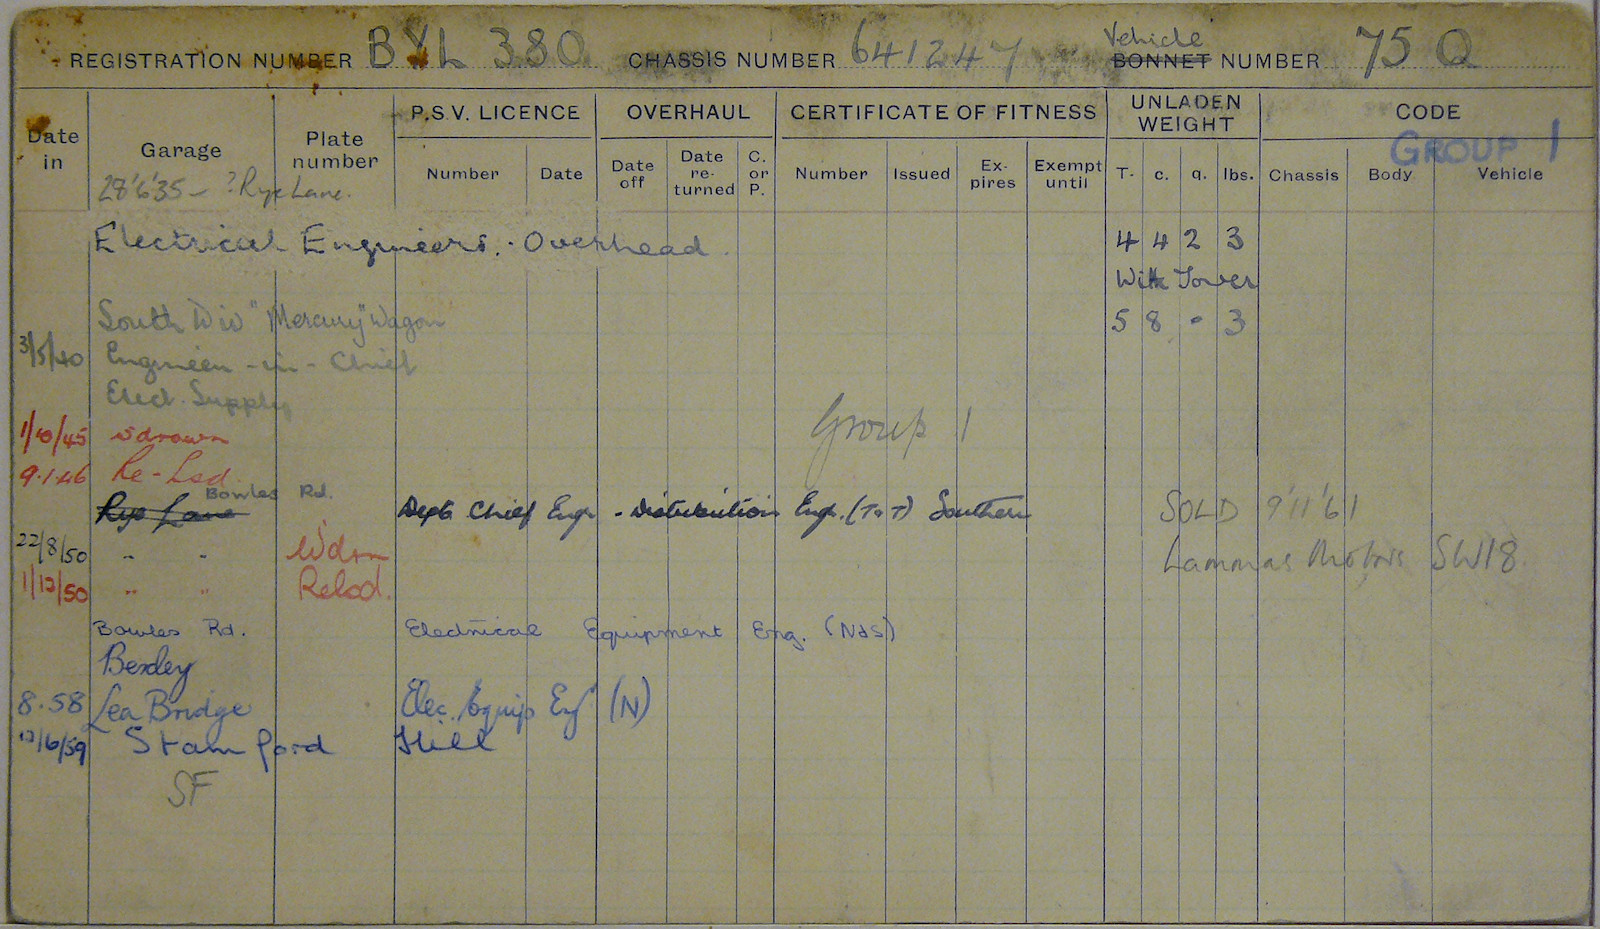 REGISTRATION NUMBER BYL 380 CHASSIS NUMBER 641247 Vehicle BONNET NUMBER 75 Q
Date in Garage Plate number P.S.V. LICENCE OVERHAUL CERTIFICATE OF FITNESS UNLADEN WEIGHT CODE
GROUP 1
Number Date Date off Date re-turned C. or P. Number Issued Ex-pires Exempt until T. c. q. lbs. Chassis Body Vehicle
28'6'35 - ? Rye Lane.
Electrical Engineers. - Overhead. 4 4 2 3
With Tower
South Div "Mercury" Wagon 5 8 - 3
3/5/40 Engineer-in-Chief
Elect. Supply
1/10/45 wdrawn Group 1
9.1.46 Re-Lsd.
Bowles Rd.
Rye Lane Dept Chief Engr - Distribution Engr. (T&T) Southern SOLD 9'11'61
22/8/50 " " Wdrn Lammas Motors SW18
1/12/50 " " Relsd.
Bowles Rd. Electrical Equipment Eng. (N&S)
Bexley
8.58 Lea Bridge Elec. Equip Eng (N)
/6/59 Stamford Hill
SF